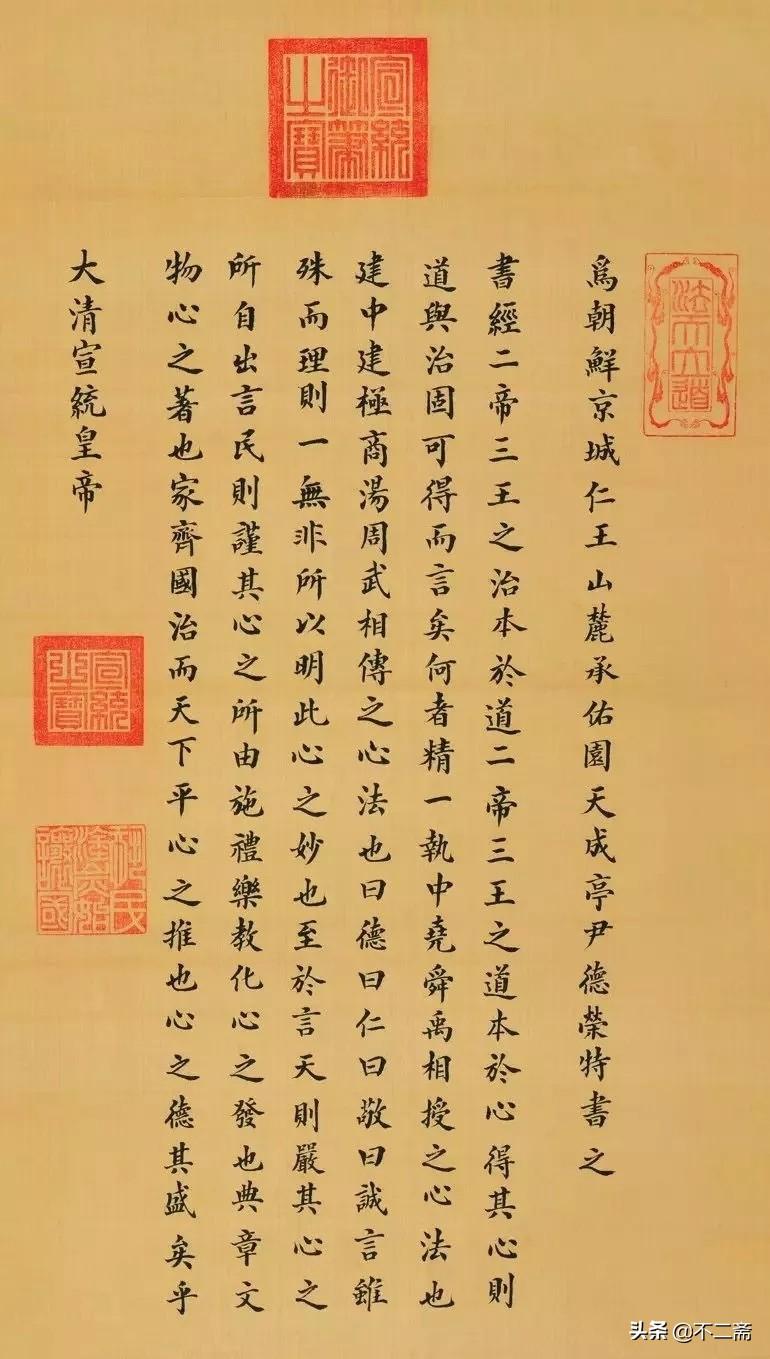 宣統御筆之寶
法天立道
爲朝鮮京城仁王山麓承佑園天成亭尹德榮特書之
書經二帝三王之治本於道二帝三王之道本於心得其心則
道與治固可得而言矣何者精一執中堯舜禹相授之心法也
建中建極商湯周武相傳之心法也曰德曰仁曰敬曰誠言雖
殊而理則一無非所以明此心之妙也至於言天則嚴其心之
所自出言民則謹其心之所由施禮樂教化心之發也典章文
物心之著也家齊國治而天下平心之推也心之德其盛矣乎
大清宣統皇帝
宣統之寶
头条 @不二斋